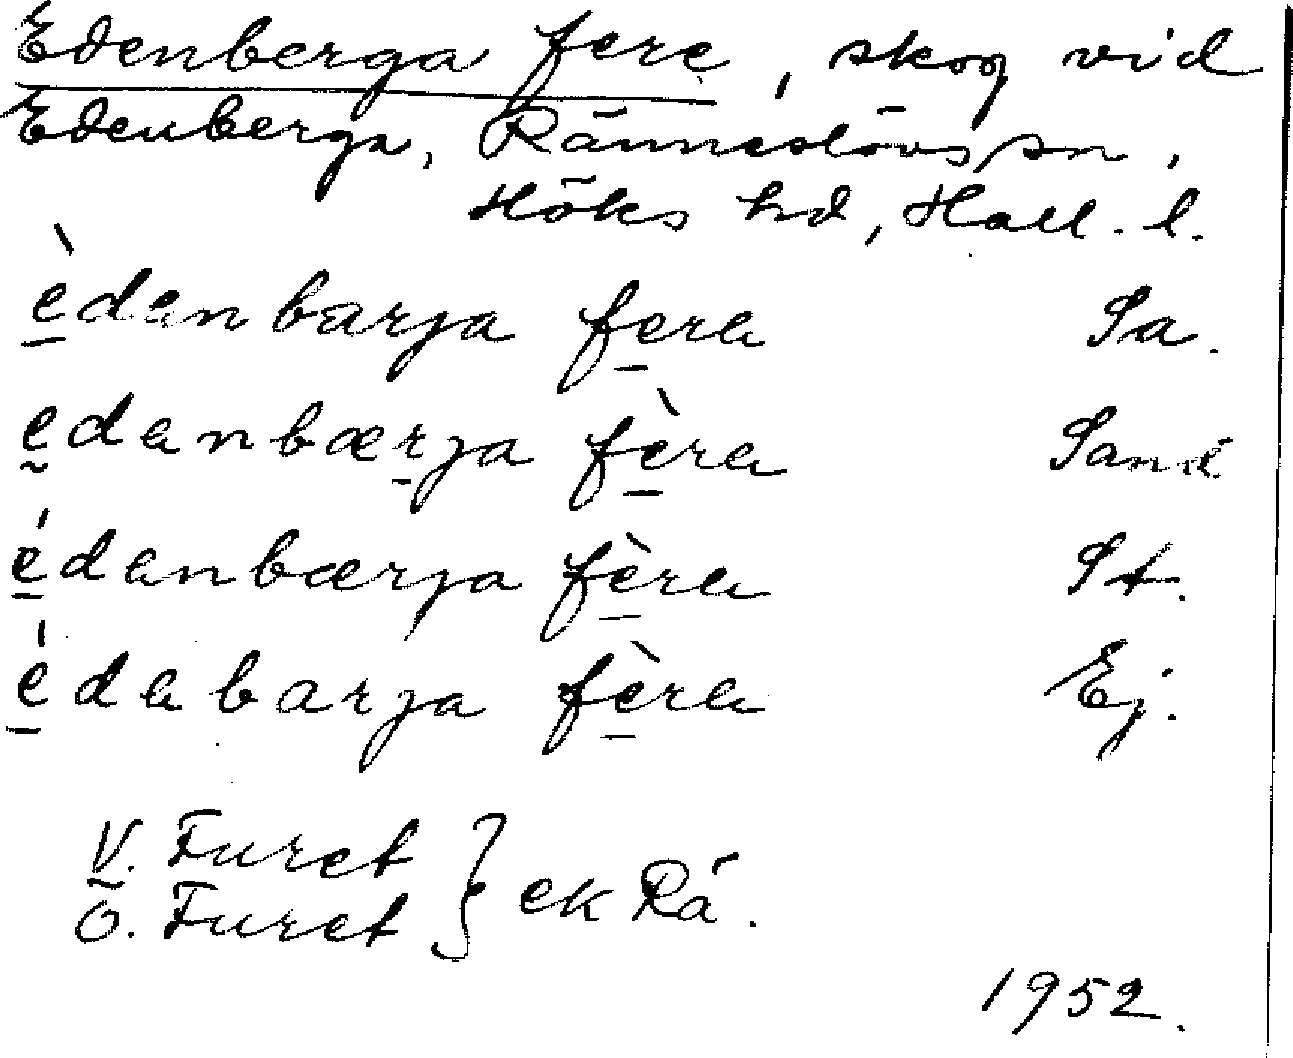 Edenberga fere, skog vid
Edenberga, Ränneslövs sn,
Höks hd, Hall. l.
èdanbarja fera Sa.
edanbærja fèra Sand
édanbærja fèra St.
édabarja fèra Ej.
V. Furet
Ö. Furet } ek Rä.
1952.